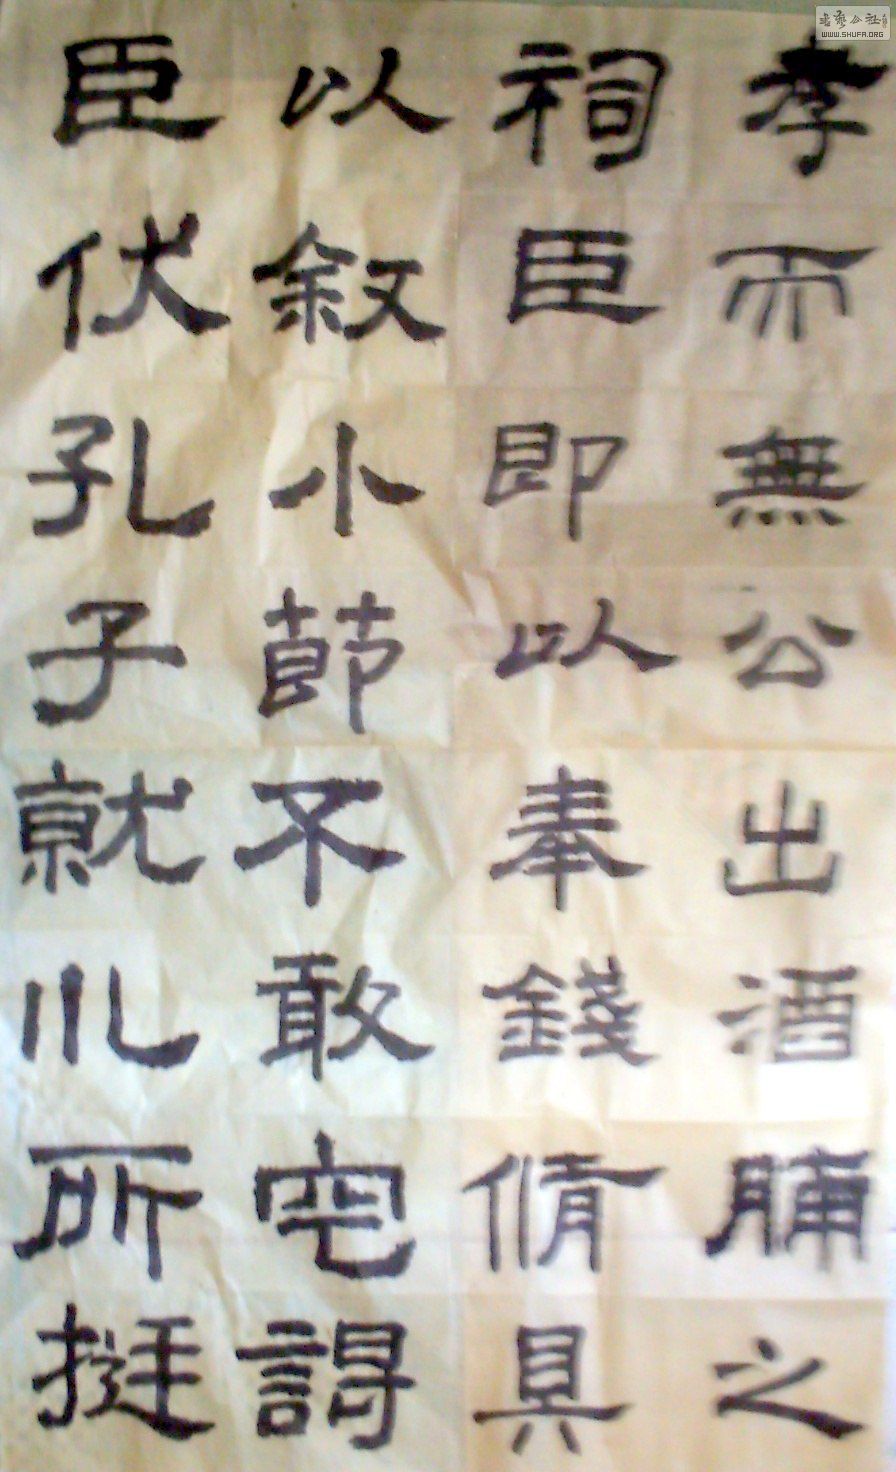 孝而無公出酒脯之
祠臣即以奉錢脩具
以敘小節不敢空謁
臣伏孔子就川所挺
书艺公社
WWW.SHUFA.ORG